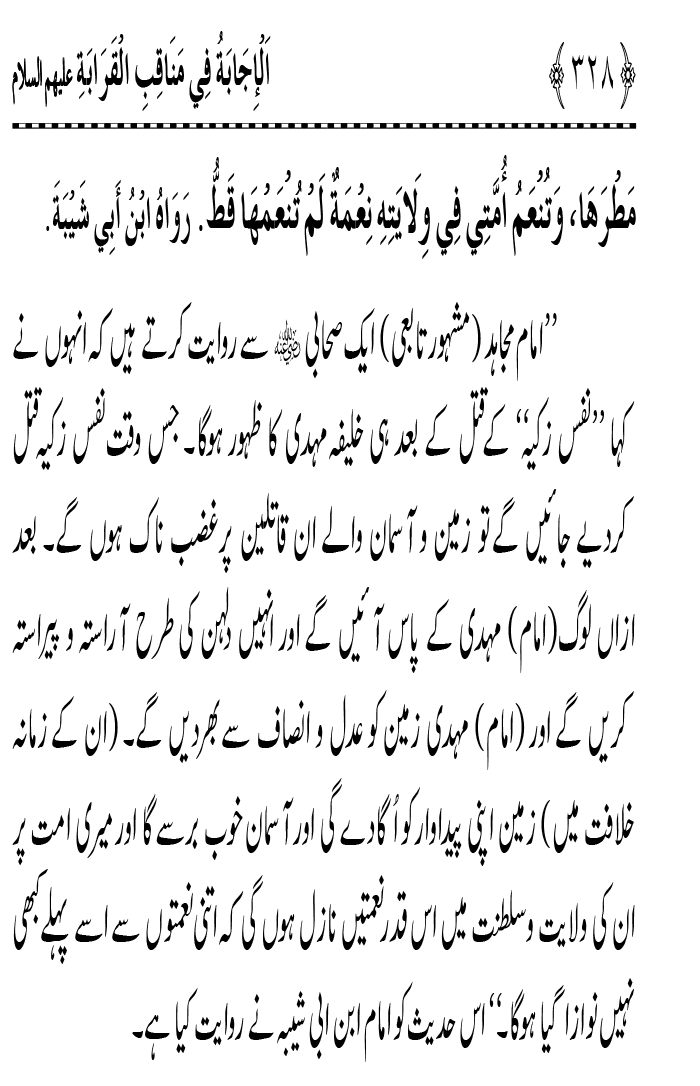 ﴿۳۲۸﴾ اَلْإِجَابَةُ فِي مَنَاقِبِ الْقَرَابَةِ علیہم السلام
مَطْرَهَا، وَتُنْعَمُ أُمَّتِي فِي وِلَايَتِهِ نِعْمَةٌ لَمْ تُنْعَمْهَا قَطُّ. رَوَاهُ ابْنُ أَبِي شَيْبَةَ.
’’امام مجاہد (مشہور تابعی) ایک صحابی ﷜ سے روایت کرتے ہیں کہ انہوں نے
کہا ’’نفس زکیہ‘‘ کے قتل کے بعد ہی خلیفہ مہدی کا ظہور ہوگا۔ جس وقت نفس زکیہ قتل
کردیے جائیں گے تو زمین و آسمان والے ان قاتلین پر غضب ناک ہوں گے۔ بعد
ازاں لوگ (امام) مہدی کے پاس آئیں گے اور انہیں دلہن کی طرح آراستہ و پیراستہ
کریں گے اور (امام) مہدی زمین کو عدل و انصاف سے بھر دیں گے۔ (ان کے زمانہ
خلافت میں) زمین اپنی پیداوار کو اُگا دے گی اور آسمان خوب برسے گا اور میری امت پر
ان کی ولایت و سلطنت میں اس قدر نعمتیں نازل ہوں گی کہ اتنی نعمتوں سے اسے پہلے کبھی
نہیں نوازا گیا ہوگا۔‘‘ اس حدیث کو امام ابن ابی شیبہ نے روایت کیا ہے۔